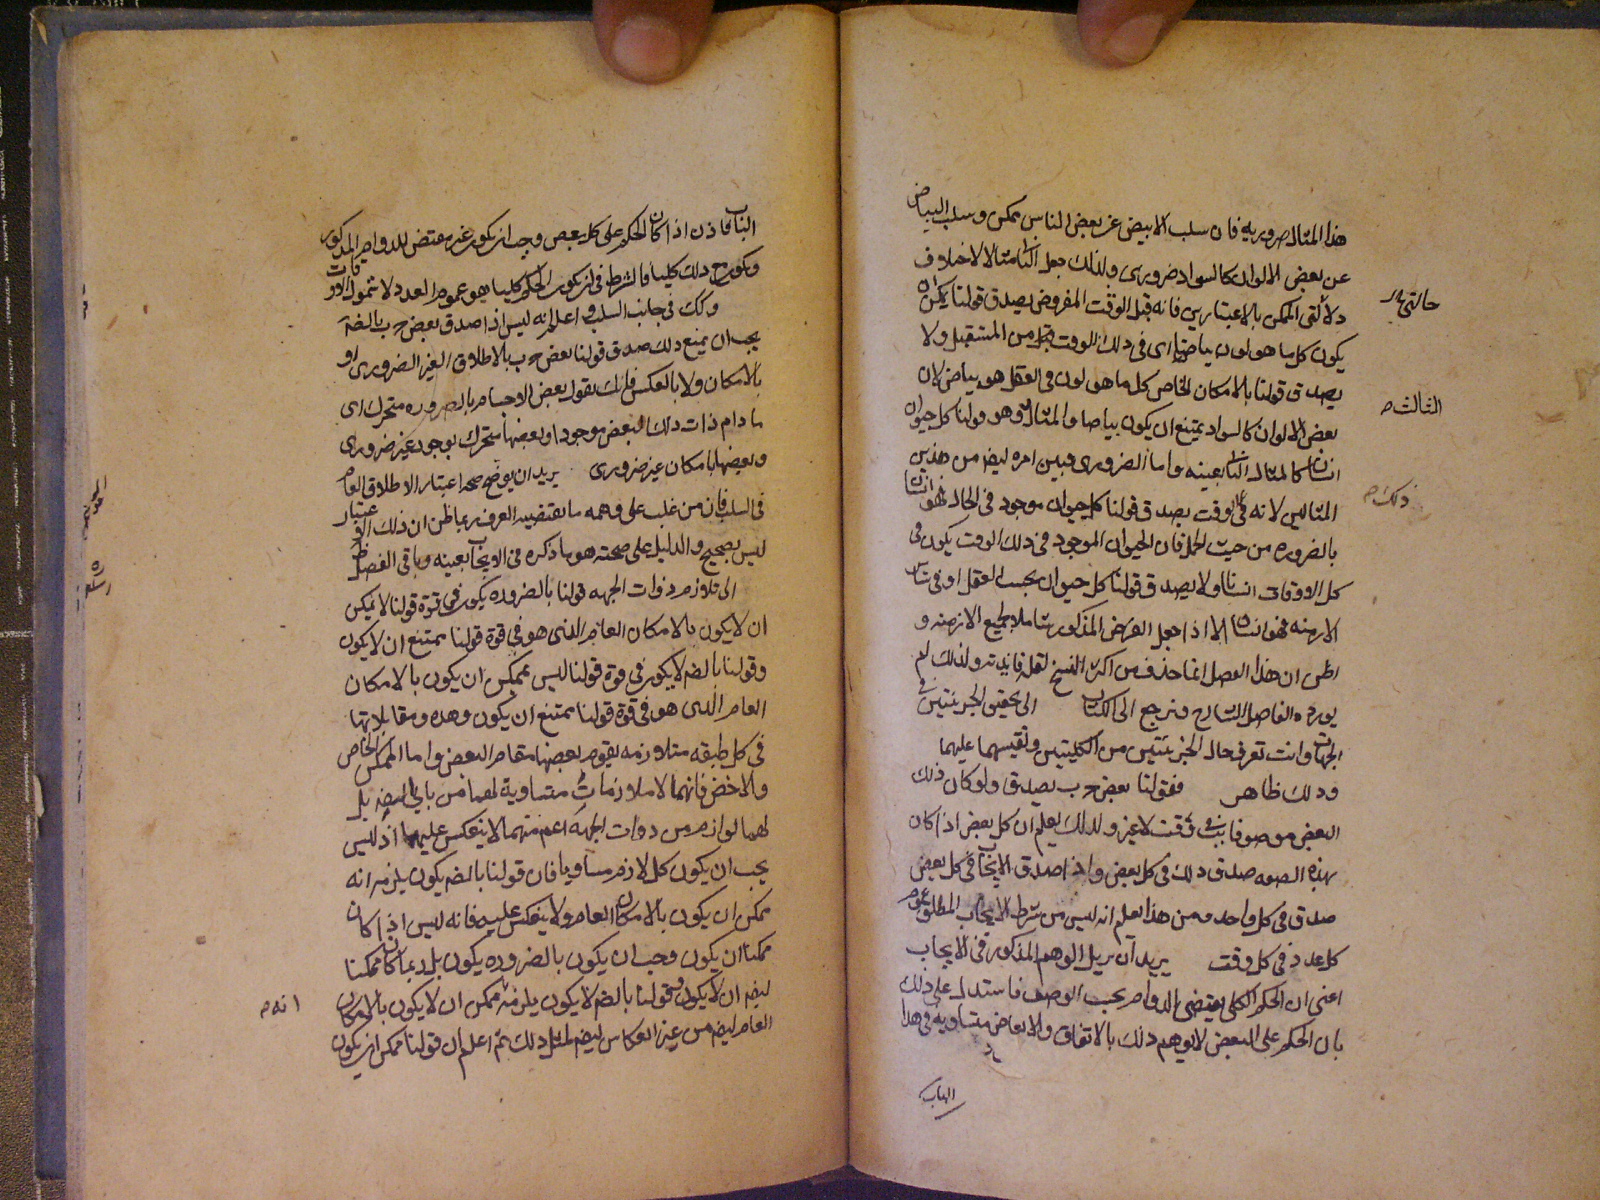 هذا المثال ضروريه فان سلب الابيض عن بعض الناس ممكن وسلب البياض
عن بعض الالوان كالسواد ضروري ولذلك جعل الثانى مثالا لاختلاف
حالتى
دلالتى الممكن بالاعتبارين فانه قبل الوقت المفروض يصدق قولنا يمكن ان
يكون كل ما هو لون بياضا اى فى ذلك الوقت من المستقبل ولا
يصدق قولنا بالامكان الخاص كل ما هو لون فى العقل هو بياض لان
الثالث
بعض الالوان كالسواد يمتنع ان يكون بياضا والمثال وهو قولنا كل حيوان
انسان كالمثال الثانى بعينه واما الضرورى فبين امره ليضم من هذين
ذلك
المثالين لانه فى وقت يصدق قولنا كل حيوان موجود فى الحال فهو انسان
بالضروره من حيث الحمل فان الحيوان الموجود فى ذلك الوقت يكون فى
كل الاوقات انسانا ولا يصدق قولنا كل حيوان بحسب العقل او فى سائر
الازمنه فهو انسان الا اذا جعل الفرض المذكور شاملا لجميع الازمنه و
اظن ان هذا الفصل انما حذف من اكثر النسخ لقلة فايدته ولذلك لم
يورده الفاضل الشارح ونرجع الى الكتاب الى تحقيق الجزئيتين فى
الجهات وانت تعرف حال الجزئيتين من الكليتين وتقيسهما عليهما
وذلك ظاهر فقولنا بعض ج ب يصدق ولو كان ذلك
البعض موصوفا بب فى وقت لا غير ولذلك يعلم ان كل بعض اذا كان
بهذه الصفه صدق ذلك فى كل بعض واذا صدق الايجاب فى كل بعض
صدق فى كل واحد ومن هذا يعلم انه ليس من شرط الايجاب المطلق عموم
كل عدد فى كل وقت يريد ان يزيل الوهم المذكور فى الايجاب
اعنى ان الحكم الكلى يقتضى الدوام بحسب الوصف فاستدل على ذلك
بان الحكم على البعض لا يوهم ذلك بالاتفاق والابعاض متساويه فى هذا
الباب
الباب فاذن اذا كان الحكم على كل بعض وجب ان يكون غير مقتض للدوام المذكور
ويكون مع ذلك كليا فالشرط فى ان يكون الحكم كليا هو عموم العدد لا شمول الاوقات
وكذلك فى جانب السلب واعلم انه ليس اذا صدق بعض ج ب بالضرورة
يجب ان يمنع ذلك صدق قولنا بعض ج ب بالاطلاق الغير الضرورى او
بالامكان ولا بالعكس فانك تقول بعض الاجسام بالضروره متحرك اى
ما دام ذات ذلك البعض موجودا وبعضها متحرك بوجود غير ضرورى
وبعضها بامكان غير ضرورى يريد ان يوضح صحه اعتبار الاطلاق العام
فى السلب فان من غلب على وهمه ما يقتضيه العرف ربما ظن ان ذلك الاعتبار
ليس بصحيح والدليل على صحته هو ما ذكره فى الايجاب بعينه وباقى الفصل ظ
الى تلازم ذوات الجهه قولنا بالضروره يكون فى قوة قولنا لا يمكن
ان لا يكون بالامكان العام الذى هو فى قوة قولنا ممتنع ان لا يكون
وقولنا بالضم لا يكون فى قوة قولنا ليس بممكن ان يكون بالامكان
العام الذى هو فى قوة قولنا ممتنع ان يكون وهذه ومقابلاتها
فى كل طبقه متلازمه يقوم بعضها مقام البعض واما الممكن الخاص
والاخص فانهما لا ملازمات متساوية لهما من بابى الضم بل
لهما لوازم من ذوات الجهة اعم منهما لا ينعكس عليهما اذ ليس
يجب ان يكون كل لازم مساويا فان قولنا بالضم يكون يلزمه انه
ممكن ان يكون بالامكان العام ولا ينعكس عليه فانه ليس اذا كان
ممكنا ان يكون وجب ان يكون بالضروره يكون بل ربما كان ممكنا
ليضم ان لا يكون وقولنا بالضم لا يكون يلزمه ممكن ان لا يكون بالامكان
انه
العام ليضم من غير انعكاس ليضم لمثل ذلك ثم اعلم ان قولنا ممكن ان يكون